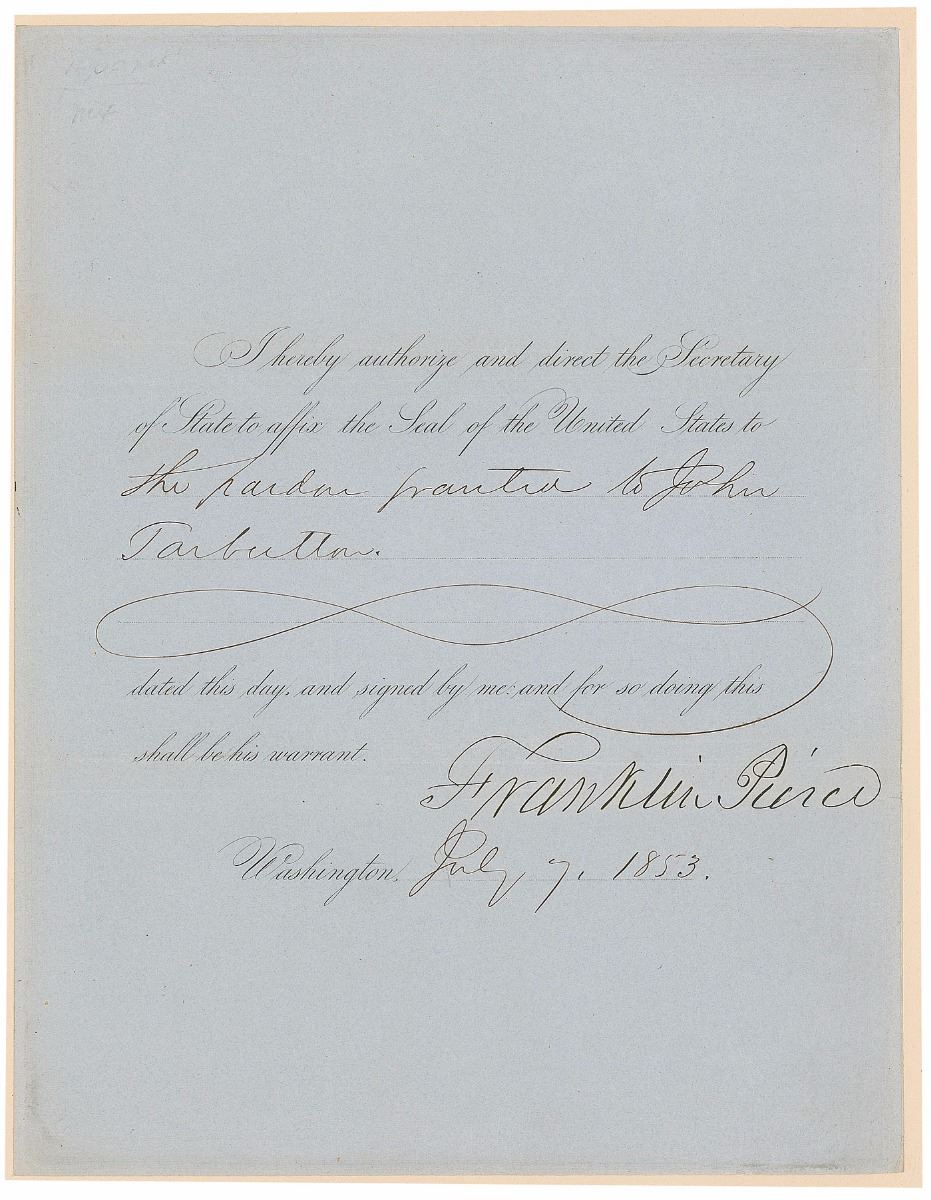 I hereby authorize and direct the Secretary
of State to affix the Seal of the United States to
the pardon granted to John
Tarbutton.
dated this day, and signed by me: and for so doing this
shall be his warrant.
Franklin Pierce
Washington, July 7, 1853.